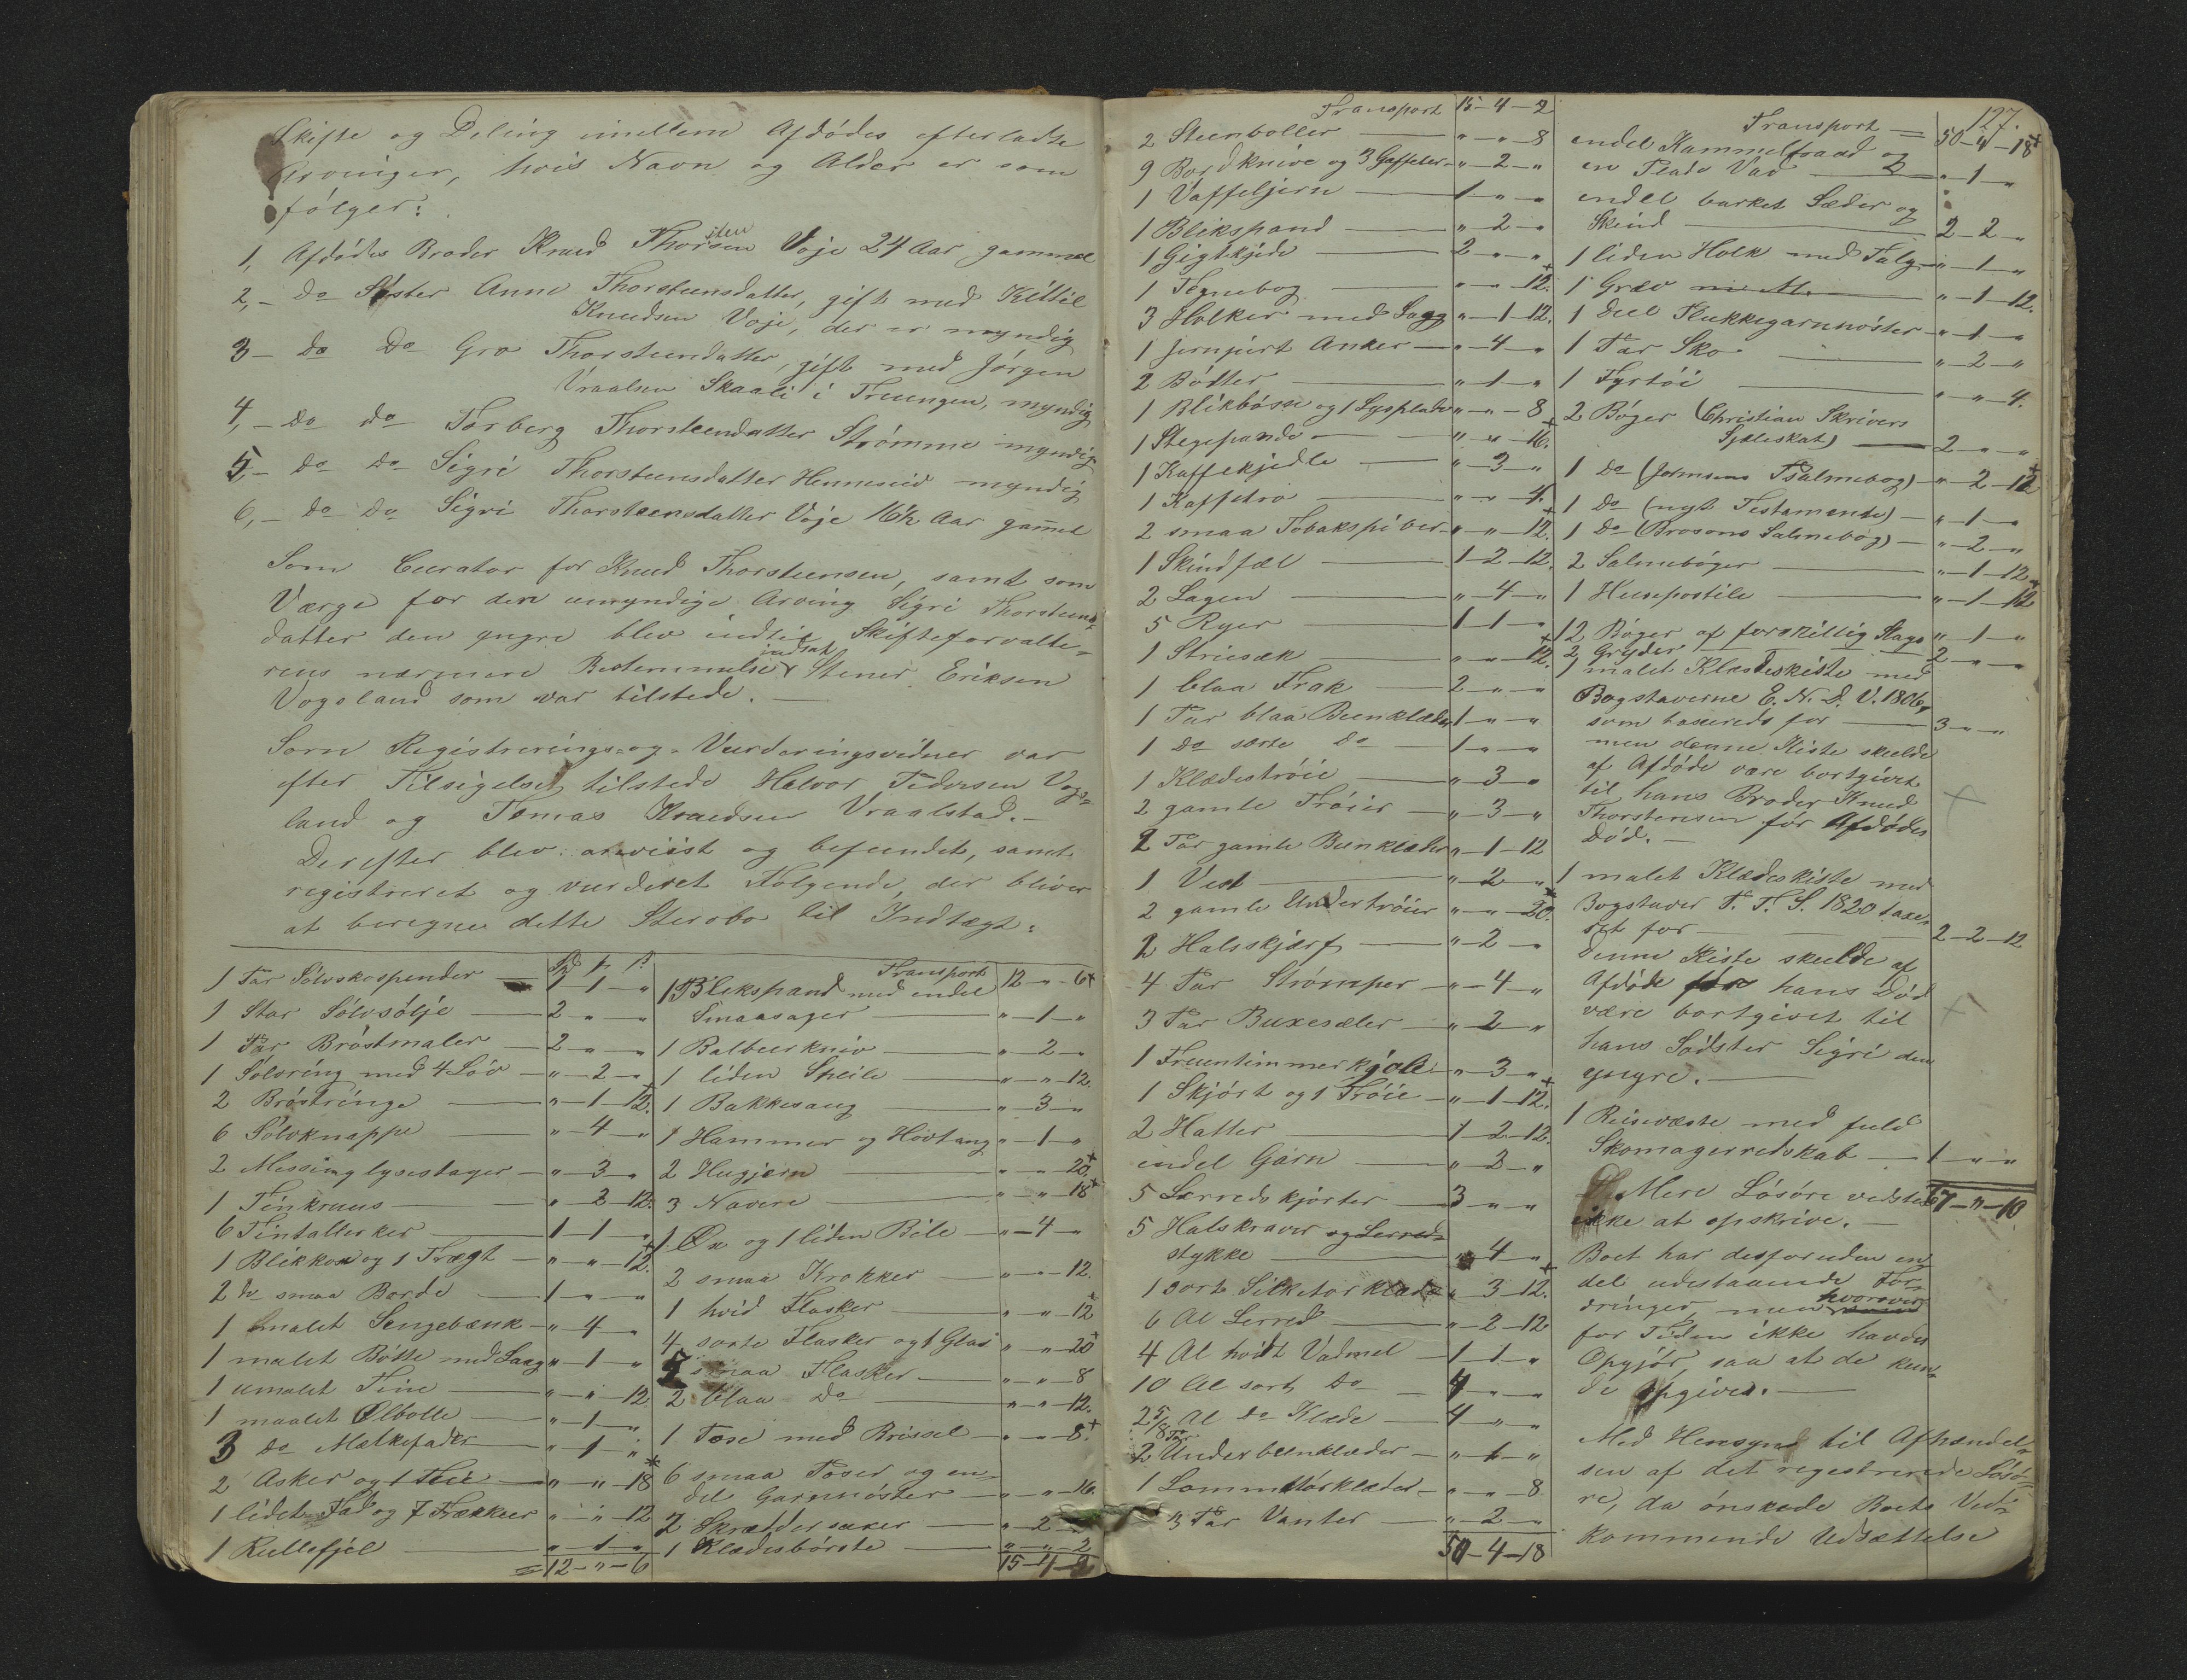 Skifte og Deling imellem Afdødes efterladte
Arvinger, hvis Navn og Alder er som
følger:
1, Afdødes Broder Knud Thorsteen Voje 24 Aar gammel
2, - Do Søster Anne Thorsteensdatter, gift med Kittil
Knudsen Voje, der er myndig
3 - Do Do Gro Thorsteendatter, gift med Jørgen
Vraalsen Skaali i Treungen, myndig
4, - Do do Torberg Thorsteendatter Strømme myndig
5 - Do Do Sigri Thorsteensdatter Hennesied myndig
6, - Do Do Sigri Thorsteensdatter Voje 16½ Aar gamel
Som Curator for Knud Thorsteensen, samt som
Værge for den umyndige Arving Sigri Thorsteens-
datter den yngre blev indtil Skifteforvalte-
rens nærmere Bestemmelse indsat Stener Eriksen
Vogsland som var tilstede. -
Som Registrerings- og Vurderingsvidner var
efter Tilsigelse tilstede Halvor Pedersen Vogs-
land og Tomas Knudsen Vraalstad. -
Derefter blev anviist og befundet, samt
registreret og vurderet Følgende, der bliver
at beregne dette Sterobo til Indtægt:
1 Par Sølvskospender 1 - 1 - "
1 Stor Sølvsølje 2 - " - "
1 Par Bróstmaler 2 - " - "
1 Sølvring med 4 Løv " - 2 - "
2 Bróstringe " - 1 - 12.
6 Sølvknappe " - 4 - "
2 Messing lysestager " - 3 - "
1 Tinkruus " - 2 - 12.
6 Tintallerker 1 - 1 - "
1 Blikkop og 1 Tragt " - " - 12.
2 smaa Borde 1 - " - "
1 malet Sengebænk " - 4 - "
1 malet Bøtte med Laag " - 1 - "
1 umalet Tine " - " - 12
1 maalet Ølbolle " - 1 - "
3 do Mælkefader " - 1 - "
2 Asker og 1 " - " - 18
1 lidet Fad og 7 " - " - 12
1 Rullefjel " - 1 - "
= 12 - " - 6
Transport 12 - " - 6
1 Blikspand med endel
Smaasager " - 1 - "
1 Balbeerkniv " - 2 - "
1 liden Speile " - " - 12.
1 Bakkesaug " - 3 - "
1 Hammer og Hovtang " - 1 - "
2 Hugjern " - " - 20
3 Navere " - " - 18
1 Øx og 1 liden Bile " - 4 - "
2 smaa Krokker " - " - 12.
1 hvid Flasker " - " - 12
4 sorte Flasker og 1 Glas " - " - 20
5 smaa Flasker " - " - 8
2 blaa Do " - " - 12.
1 Pose med Brissel " - " - 8
6 smaa Poser og en-
del Garnnøster " - " - 16.
2 Skræddersaxer " - 2 - "
1 Klædesbørste " - " - 2
15 - 4 - 2
Transport 15 - 4 - 2
2 Steenboller " - " - 8
9 Bordknive og 3 Gaffeler " - 2 - "
1 Vaffeljern 1 - " - "
1 Blikspand " - 2 - "
1 Gigtkjede 2 - " - "
1 Tegnebog " - " - 12.
3 Holker med Lagg " - 1 - 12.
1 jerngjort Anker " - 4 - "
2 Bøtter " - 1 - "
1 Blikbøsse og 1 Lysplade " - " - 8
1 Stegepande " - " - 16.
1 Kaffekjedle " - 3 - "
1 Kaffetro " - " - 4.
2 smaa Tobakspiber " - " - 12.
1 Skindfæl 1 - 2 - 12.
2 Lagen " - 4 - "
5 Ryer 1 - 1 - "
1 Striesæk " - " - 12.
1 blaa Frak 2 - " - "
1 Par blaa Beenklæder 1 - " - "
1 Do sorte Do 1 - " - "
1 Klædestrøie " - 3 - "
2 gamle Trøier " - 3 - "
2 Par gamle Beenklæder " - 1 - 12
1 Vest " - 2 - "
2 gamle Undertrøier " - " - 20.
2 Halsskjærf " - 2 - "
4 Par Strømper " - 4 - "
3 Par Buxesæler " - 2 - "
1 Fruentimmerkjole " - 3 - "
1 Skjørt og 1 Trøie " - 1 - 12.
2 Hatter 1 - 2 - 12.
endel Garn " - 3 - "
5 Lærredskjorter 3 - " - "
5 Halskraver og Lerred-
stykke " - 4 - "
1 sort Silketørklæde " - 3 - 12.
6 Al Lerred " - 2 - 12
4 Al hvidt Vadmel 1 - 1 - "
10 Al sort Do 4 - " - "
2⅝ Al do Klæde 4 - " - "
2 Par Underbeenklæder " - 1 - "
1 Lommetørklæder " - " - 8.
3 Par Vanter " - 2 - "
50 - 4 - 18
127.
Transport 50 - 4 - 18
endel Kammelfraad og
en Flade Vad " - 1 - "
endel barket Læder og
Skind 2 - 2 - "
1 liden Holk med Talg " - 1 - "
1 Græv " - 1 - 12.
1 deel Plukkegarnnøster " - 1 - "
1 Par Sko " - 2 - "
1 Fyrtøi " - " - 4.
2 Bøger (Christian Skrivers
Sjæleskat) 2 - " - "
1 Do (Johnsons Psalmebog) " - 2 - 12
1 Do (nyt Testamente) " - 1 - "
1 Do (Brosons Salmebog) " - 2 - "
2 Salmebøger " - 1 - 12
1 Huuspostile " - 1 - 12
12 Bøger af forskillig Slags " - 1 - "
2 Gryder 2 - " - "
1 malet Klædeskiste med
Bogstaverne E. N. D. V. 1806,
som taxeredes for 3 - " - "
men denne Kiste skulde
af Afdøde være bortgivet
til hans Broder Knud
Thorstensen før Afdødes
Død. -
1 malet Klædeskiste med
Bogstaver T. T. S. 1820 taxe-
ret for 2 - 2 - 12
denne Kiste skulde af
Afdøde før hans Død
være bortgivet til
hans Sødster Sigri den
yngre. -
1 Reisevæske med fuld
Skomagerredskab 1 - " - "
Mere Løsøre vedstes 67 - " - 10
ikke at opskrive. -
Boet har desforuden en-
del udestaaende For-
dringer, men hvorover
for Tiden ikke havdes
Opgjør, saa at de kun-
de opgives. -
Med Hensyn til Afhændel-
sen af det regestrerede Løsø-
re, da ønskede Boets Ved-
kommende Udsættelse